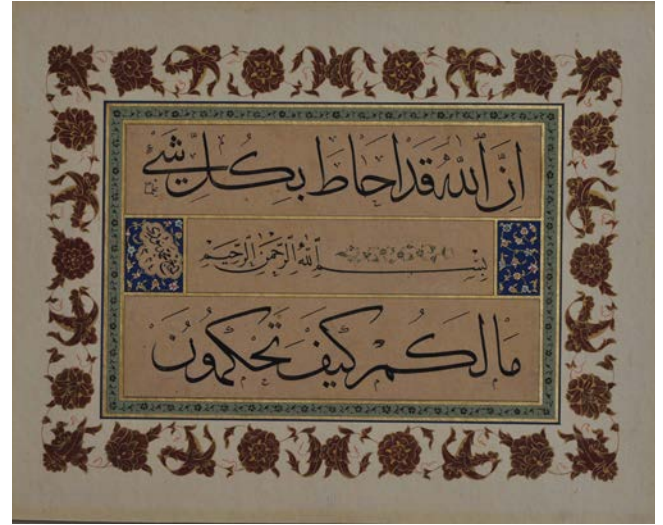 اِنَّ اللّٰهَ قَدْ اَحَاطَ بِكُلِّ شَيْءٍ
بِسْمِ اللّٰهِ الرَّحْمٰنِ الرَّحِيمِ
مَا لَكُمْ كَيْفَ تَحْكُمُونَ